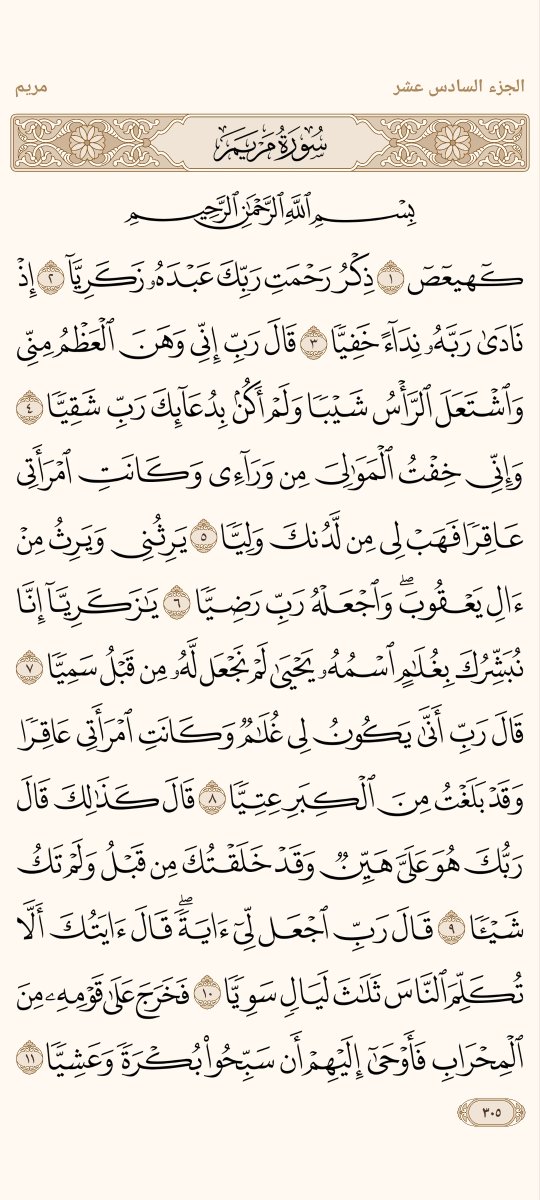 الجزء السادس عشر
مريم
سُورَةُ مَرۡيَمَ
بِسۡمِ ٱللَّهِ ٱلرَّحۡمَٰنِ ٱلرَّحِيمِ
كٓهيعٓصٓ ١ ذِكۡرُ رَحۡمَتِ رَبِّكَ عَبۡدَهُۥ زَكَرِيَّآ ٢ إِذۡ
نَادَىٰ رَبَّهُۥ نِدَآءً خَفِيّٗا ٣ قَالَ رَبِّ إِنِّي وَهَنَ ٱلۡعَظۡمُ مِنِّي
وَٱشۡتَعَلَ ٱلرَّأۡسُ شَيۡبٗا وَلَمۡ أَكُنۢ بِدُعَآئِكَ رَبِّ شَقِيّٗا ٤
وَإِنِّي خِفۡتُ ٱلۡمَوَٰلِيَ مِن وَرَآءِي وَكَانَتِ ٱمۡرَأَتِي
عَاقِرٗا فَهَبۡ لِي مِن لَّدُنكَ وَلِيّٗا ٥ يَرِثُنِي وَيَرِثُ مِنۡ
ءَالِ يَعۡقُوبَۖ وَٱجۡعَلۡهُ رَبِّ رَضِيّٗا ٦ يَٰزَكَرِيَّآ إِنَّا
نُبَشِّرُكَ بِغُلَٰمٍ ٱسۡمُهُۥ يَحۡيَىٰ لَمۡ نَجۡعَل لَّهُۥ مِن قَبۡلُ سَمِيّٗا ٧
قَالَ رَبِّ أَنَّىٰ يَكُونُ لِي غُلَٰمٞ وَكَانَتِ ٱمۡرَأَتِي عَاقِرٗا
وَقَدۡ بَلَغۡتُ مِنَ ٱلۡكِبَرِ عِتِيّٗا ٨ قَالَ كَذَٰلِكَ قَالَ
رَبُّكَ هُوَ عَلَيَّ هَيِّنٞ وَقَدۡ خَلَقۡتُكَ مِن قَبۡلُ وَلَمۡ تَكُ
شَيۡـٔٗا ٩ قَالَ رَبِّ ٱجۡعَل لِّيٓ ءَايَةٗۖ قَالَ ءَايَتُكَ أَلَّا
تُكَلِّمَ ٱلنَّاسَ ثَلَٰثَ لَيَالٖ سَوِيّٗا ١٠ فَخَرَجَ عَلَىٰ قَوۡمِهِۦ مِنَ
ٱلۡمِحۡرَابِ فَأَوۡحَىٰٓ إِلَيۡهِمۡ أَن سَبِّحُواْ بُكۡرَةٗ وَعَشِيّٗا ١١
٣٠٥